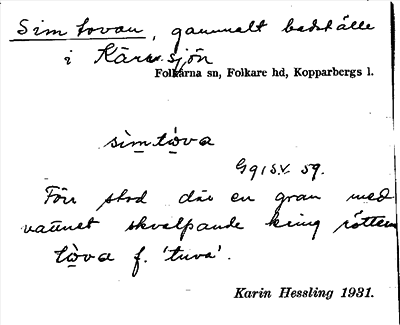 Simtovan, gammalt badställe
i Kärrsjön
Folkärna sn, Folkare hd, Kopparbergs l.
simtòva
G 9 1 S.V. 59.
Förr stod där en gran med
vattnet skvalpande kring rötterna
tòva f. 'tuva'.
Karin Hessling 1931.